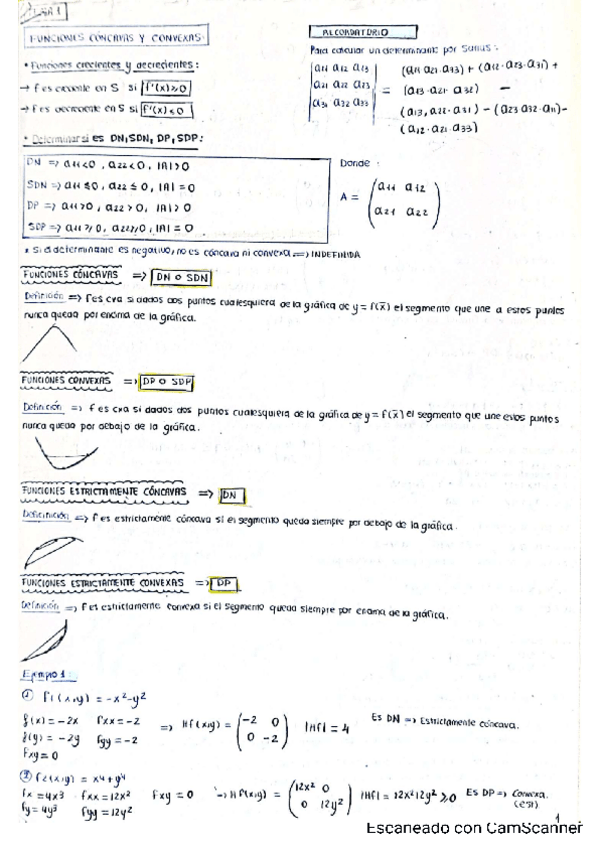 TEMA 1
FUNCIONES CÓNCAVAS Y CONVEXAS
• Funciones crecientes y decrecientes:
→ f es creciente en S si f'(x) ≥ 0
→ f es decreciente en S si f'(x) ≤ 0
RECORDATORIO
Para calcular un determinante por Sarrus:
a11 a12 a13
a21 a22 a23
a31 a32 a33
=
• Determinar si es DN, SDN, DP, SDP:
DN => a11<0, a22<0, |A|>0
SDN => a11≤0, a22≤0, |A|=0
DP => a11>0, a22>0, |A|>0
SDP => a11≥0, a22≥0, |A|=0
Donde:
A = (a11 a12
a21 a22)
* Si el determinante es negativo, no es cóncava ni convexa => INDEFINIDA
FUNCIONES CÓNCAVAS => DN o SDN
Definición => f es cva si dados dos puntos cualesquiera de la gráfica de y = f(x̄) el segmento que une a estos puntos
nunca queda por encima de la gráfica.
FUNCIONES CONVEXAS => DP o SDP
Definición => f es cxa si dados dos puntos cualesquiera de la gráfica de y = f(x̄) el segmento que une estos puntos
nunca queda por debajo de la gráfica.
FUNCIONES ESTRICTAMENTE CÓNCAVAS => DN
Definición => f es estrictamente cóncava si el segmento queda siempre por debajo de la gráfica.
FUNCIONES ESTRICTAMENTE CONVEXAS => DP
Definición => f es estrictamente convexa si el segmento queda siempre por encima de la gráfica.
Ejemplo 1:
① f1(x,y) = -x²-y²
f(x) = -2x fxx = -2
f(y) = -2y fyy = -2
fxy = 0
=> Hf(x,y) = (-2 0
0 -2) |Hf| = 4 Es DN => Estrictamente cóncava.
② f2(x,y) = x⁴+y⁴
fx = 4x³ fxx = 12x² fxy = 0
fy = 4y³ fyy = 12y²
=> Hf(x,y) = (12x² 0
0 12y²) |Hf| = 12x²12y² ≥ 0 Es DP => Convexa.
(est)
1
Escaneado con CamScanner